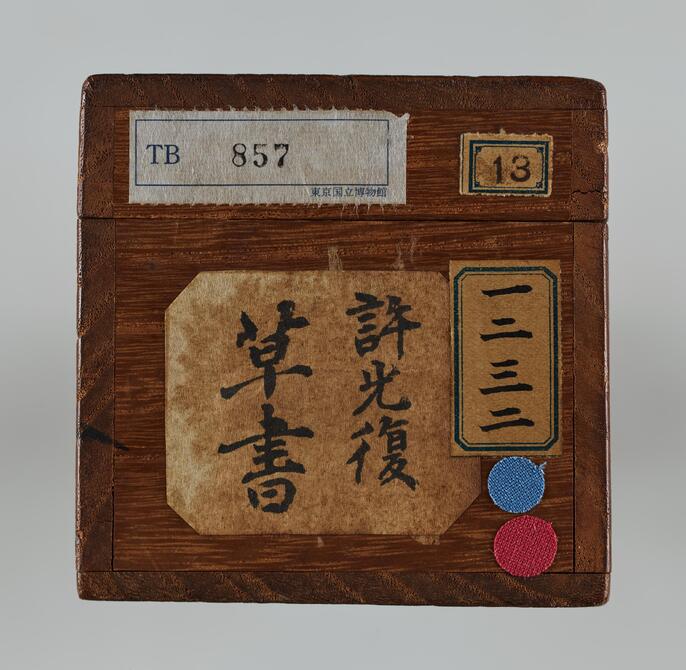 TB 857
東京国立博物館
13
一二三二
許光復
草書